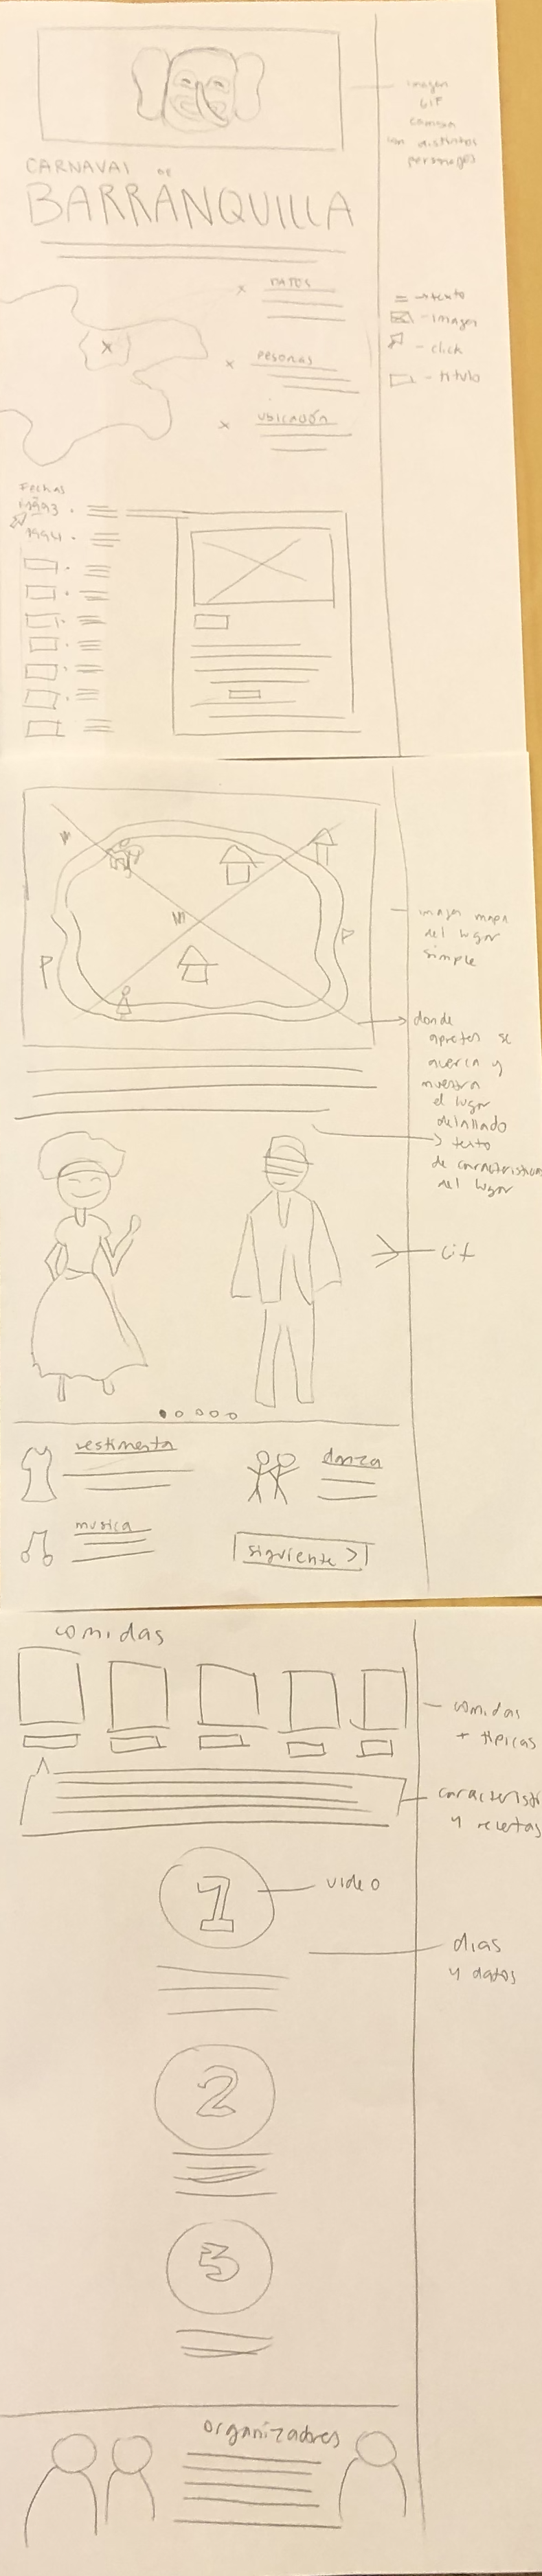 imagen
GIF
cambia
los distintos
personajes
CARNAVAL DE
BARRANQUILLA
DATOS
= → texto
- imagen
- click
- titulo
PESONAS
UBICACIÓN
Fechas
1993
1994
imagen mapa
del lugar
simple
donde
apretes se
acerca y
muestra
el lugar
detallado
texto
de caracteristicas
del lugar
Gif
vestimenta
danza
musica
siguiente >
comidas
comidas
+ tipicas
caracterist
y recetas
1
video
dias
y datos
2
3
organizadores